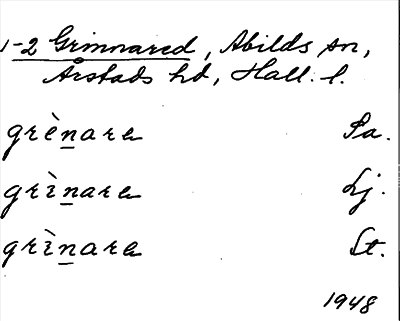 1-2 Grimnared, Abilds sn,
Årstads hd, Hall. l.
grènare Sa.
grìnare Lj.
grìnare St.
1948